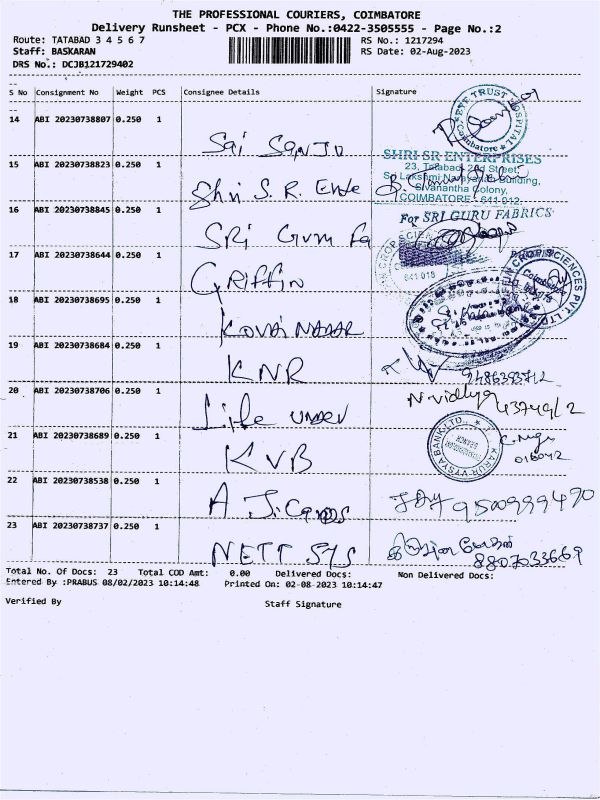 THE PROFESSIONAL COURIERS, COIMBATORE
Delivery Runsheet - PCX - Phone No.:0422-3505555 - Page No.:2
Route: TATABAD 3 4 5 6 7 RS No.: 1217294
Staff: BASKARAN RS Date: 02-Aug-2023
DRS No.: DCJB121729402
S No Consignment No Weight PCS Consignee Details Signature
14 ABI 20230738807 0.250 1
Sai Sanju
TRUST HOSPITAL
Coimbatore
15 ABI 20230738823 0.250 1
Shri S. R. Ente
SHRI SR ENTERPRISES
23, Tatabad 2nd Street,
Sri Lakshmi Narayana Building,
Sivanantha Colony,
COIMBATORE - 641 012.
16 ABI 20230738845 0.250 1
SRi Guru Fa
For SRI GURU FABRICS
17 ABI 20230738644 0.250 1
Griffin
CROP SCIEN
641 018
CROP SCIENCES PVT LTD
Coimbatore
18 ABI 20230738695 0.250 1
Kovai Nagar
19 ABI 20230738684 0.250 1
KNR
20 ABI 20230738706 0.250 1
Life under
N. vidhya
43749/2
21 ABI 20230738689 0.250 1
KVB
KARUR VYSYA BANK LTD.
22 ABI 20230738538 0.250 1
9500999490
23 ABI 20230738737 0.250 1
NETT SYS
8807033669
Total No. Of Docs: 23 Total COD Amt: 0.00 Delivered Docs: Non Delivered Docs:
Entered By :PRABUS 08/02/2023 10:14:48 Printed On: 02-08-2023 10:14:47
Verified By Staff Signature